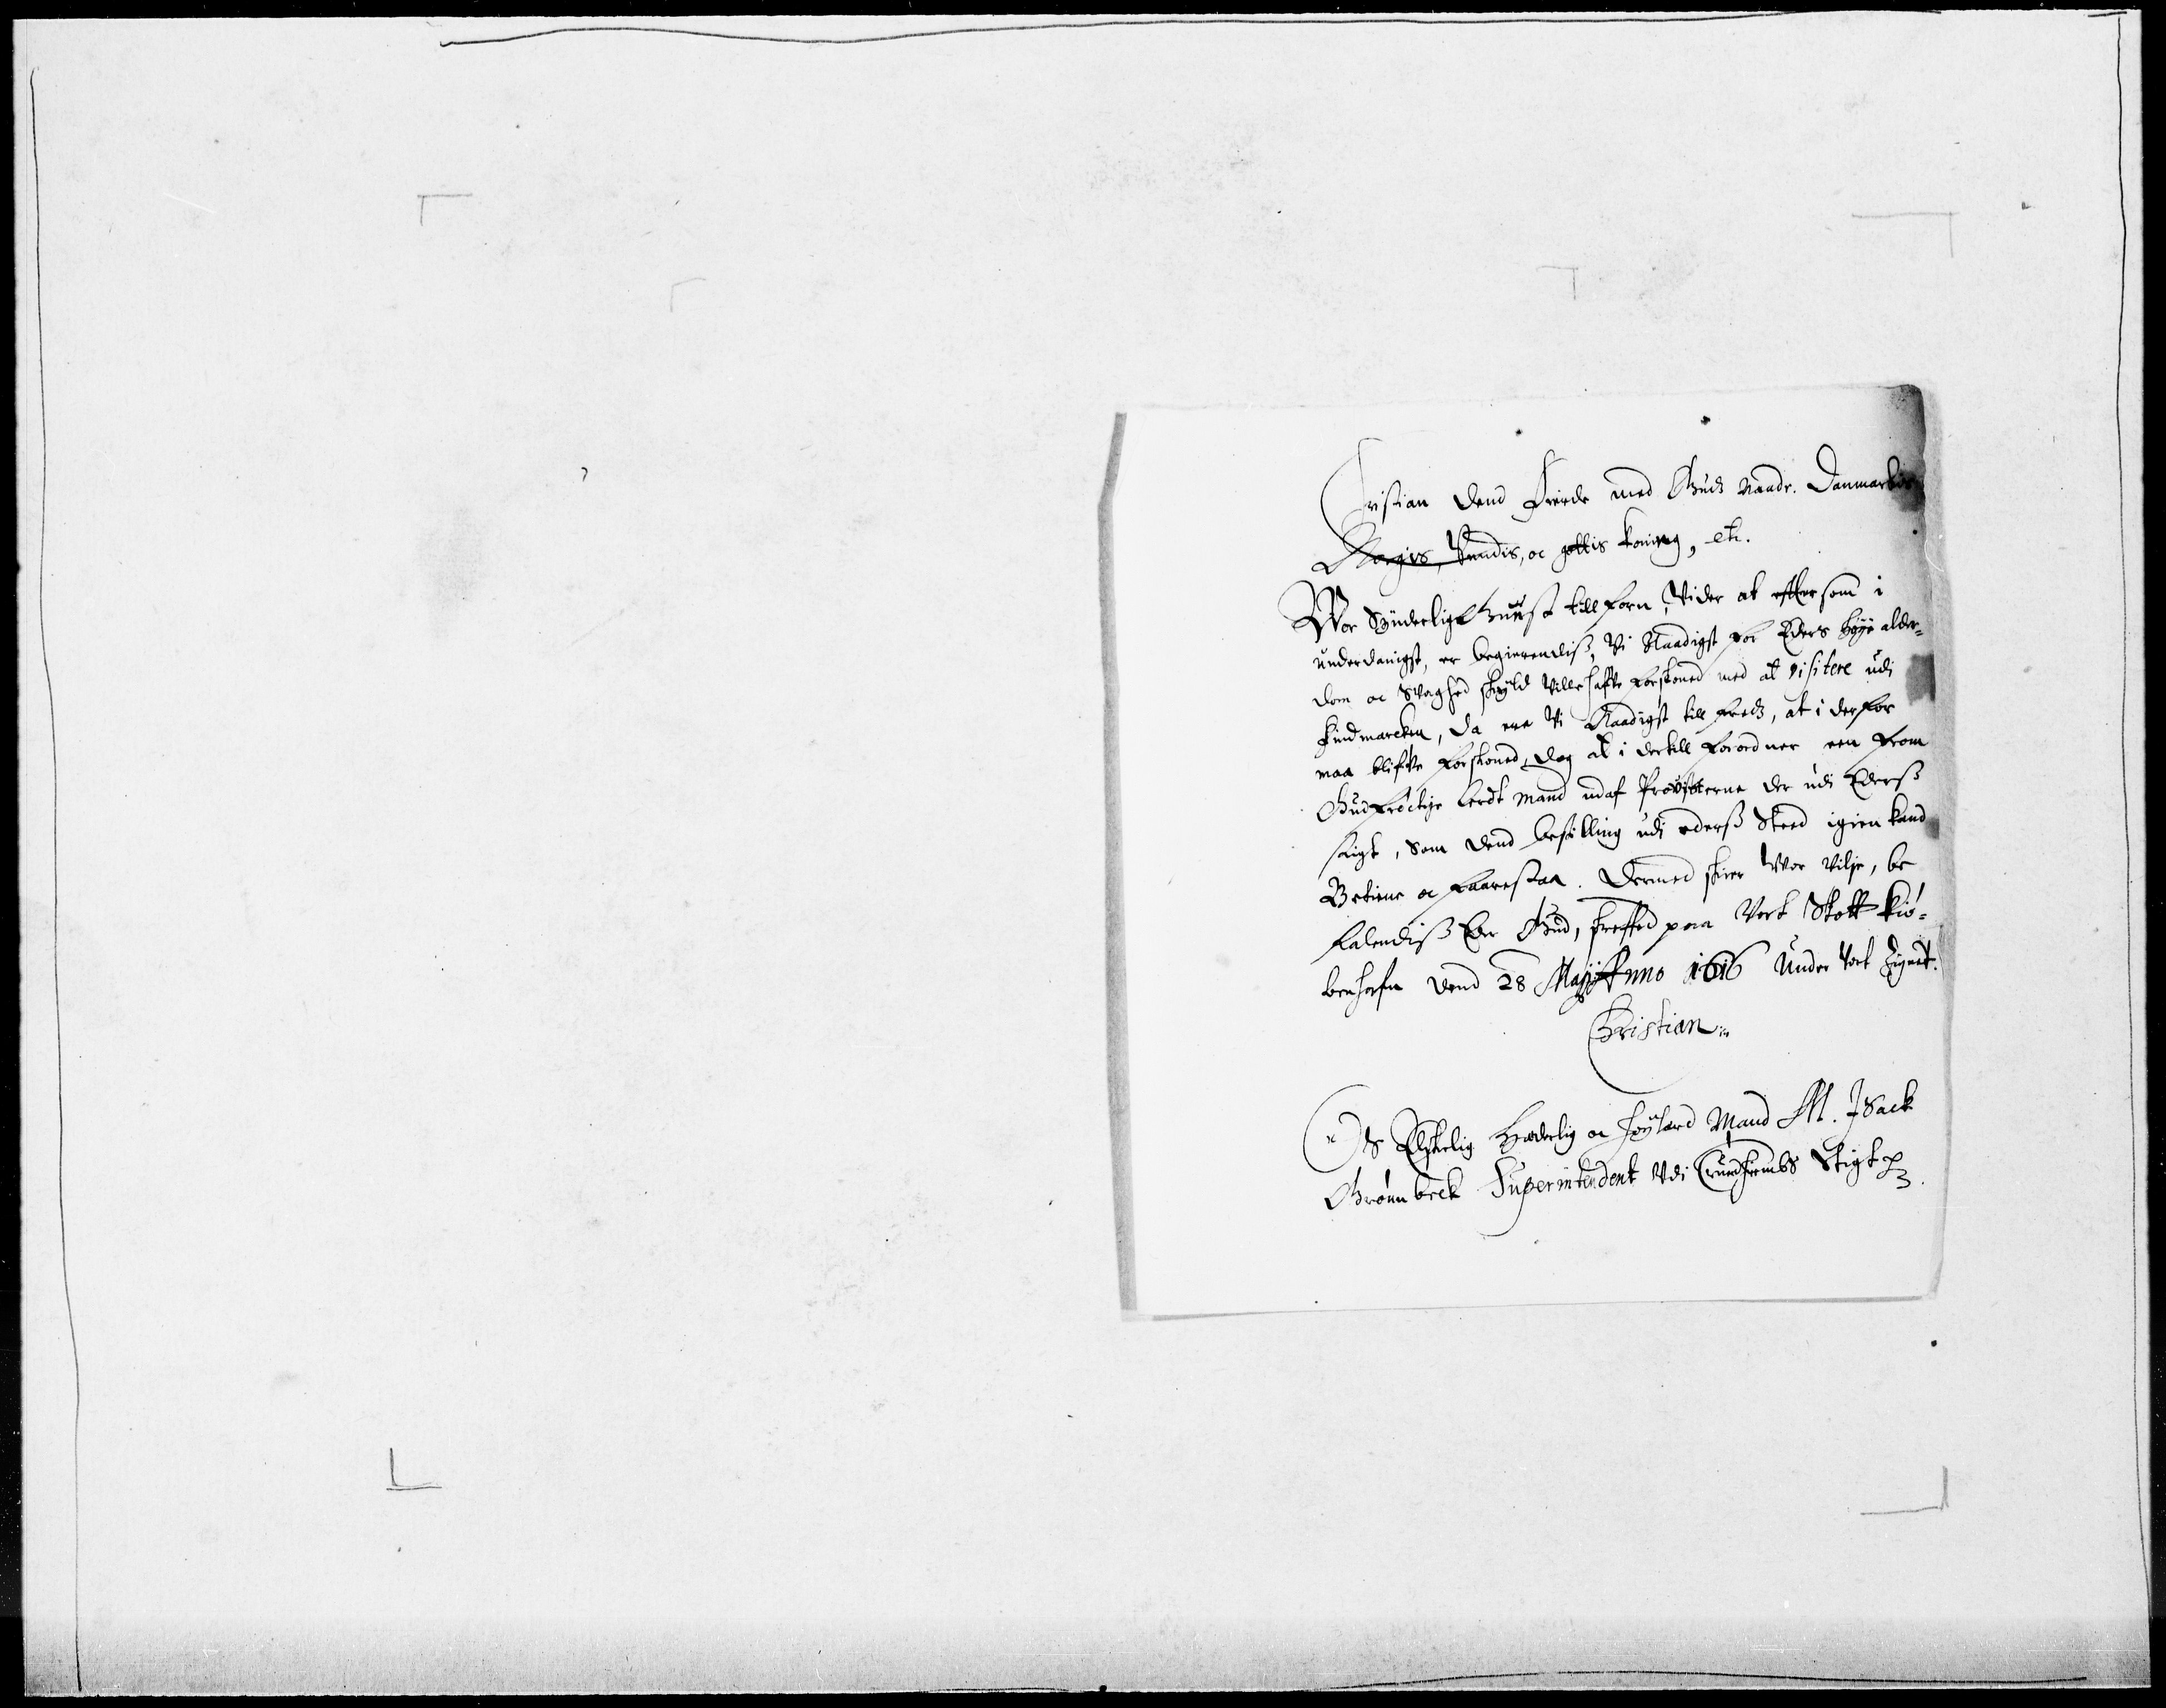 Cristian dend Fierde med Gudz Naade. Danmarkis
Norgis, Vendis, oc gottis koning, etc.
Wor Synderlige Gunst till forn, Vider at effter som i
underdanigst, er begierendiß, Vi Naadigst for Eders høye alder-
dom oc Svaghed skyld Ville hafve forskoned med at visitere udi
Findmarcken, da ere Vi Naadigst till fredz, at i derfor
maa blifve forskoned, dog at i dertill forordner een from
Gudfröctige lerdt Mand udaf Provisterne der udi Ederß
stigt, som dend bestilling udi ederß Sted igien kand
Betiene oc forrestaa. Dermed skier Wor Vilje, be
falendiß Eder Gud, skreffvet paa Vort Slott Kiö-
benhafn dend 28 Maij Anno 1616 Under Vort Zignet.
Christian
Os Elskelig Hæderlig oc Høylærd Mand M. Isack
Grönnbeck Superintendent Udi Trundhiembs Stigt